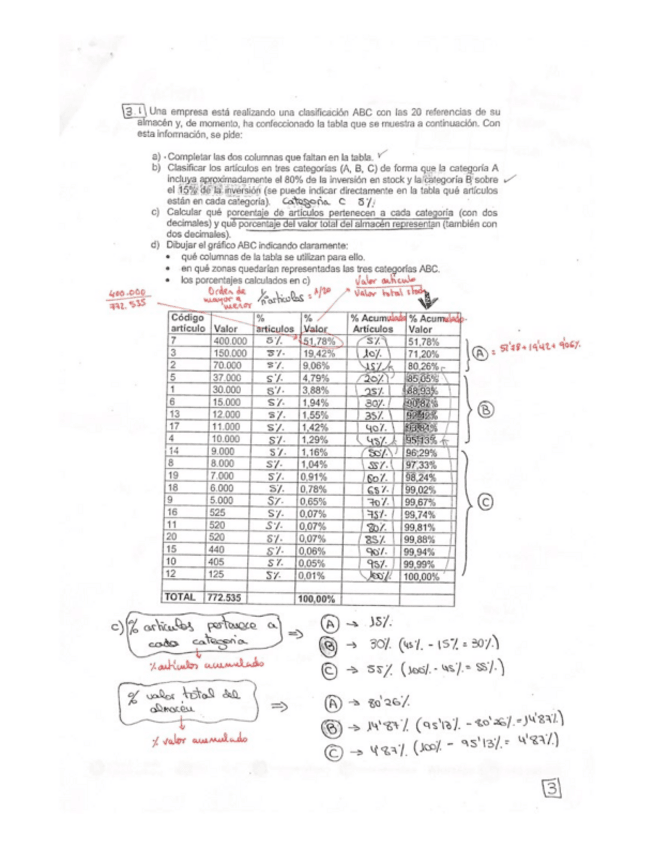 3.1 Una empresa está realizando una clasificación ABC con las 20 referencias de su
almacén y, de momento, ha confeccionado la tabla que se muestra a continuación. Con
esta información, se pide:
a) Completar las dos columnas que faltan en la tabla.
b) Clasificar los artículos en tres categorías (A, B, C) de forma que la categoría A
incluya aproximadamente el 80% de la inversión en stock y la categoría B sobre
el 15% de la inversión (se puede indicar directamente en la tabla qué artículos
están en cada categoría). Categoria C 5%
c) Calcular qué porcentaje de artículos pertenecen a cada categoría (con dos
decimales) y qué porcentaje del valor total del almacén representan (también con
dos decimales).
d) Dibujar el gráfico ABC indicando claramente:
• qué columnas de la tabla se utilizan para ello.
• en qué zonas quedarían representadas las tres categorías ABC.
• los porcentajes calculados en c)
400.000
772.535
Orden de
mayor a
menor
artículos = 1/20
Valor artículo
Valor total stock
Código artículo Valor % artículos % Valor % Acumulado Artículos % Acumulado Valor
7 400.000 5% 51,78% 5% 51,78%
3 150.000 5% 19,42% 10% 71,20%
2 70.000 5% 9,06% 15% 80,26%
A = 51'78 + 19'42 + 9'06%
5 37.000 5% 4,79% 20% 85,05%
1 30.000 5% 3,88% 25% 88,93%
6 15.000 5% 1,94% 30% 90,87%
13 12.000 5% 1,55% 35% 92,42%
B
17 11.000 5% 1,42% 40% 93,84%
4 10.000 5% 1,29% 45% 95,13%
14 9.000 5% 1,16% 50% 96,29%
8 8.000 5% 1,04% 55% 97,33%
19 7.000 5% 0,91% 60% 98,24%
18 6.000 5% 0,78% 65% 99,02%
9 5.000 5% 0,65% 70% 99,67%
C
16 525 5% 0,07% 75% 99,74%
11 520 5% 0,07% 80% 99,81%
20 520 5% 0,07% 85% 99,88%
15 440 5% 0,06% 90% 99,94%
10 405 5% 0,05% 95% 99,99%
12 125 5% 0,01% 100% 100,00%
TOTAL 772.535 100,00%
c) % artículos pertenece a
cada categoria
% artículos acumulado
A → 15%
B → 30% (45% - 15% = 30%)
C → 55% (100% - 45% = 55%)
% valor total del
almacén
% valor acumulado
A → 80'26%
B → 14'87% (95'13% - 80'26% = 14'87%)
C → 4'87% (100% - 95'13% = 4'87%)
3